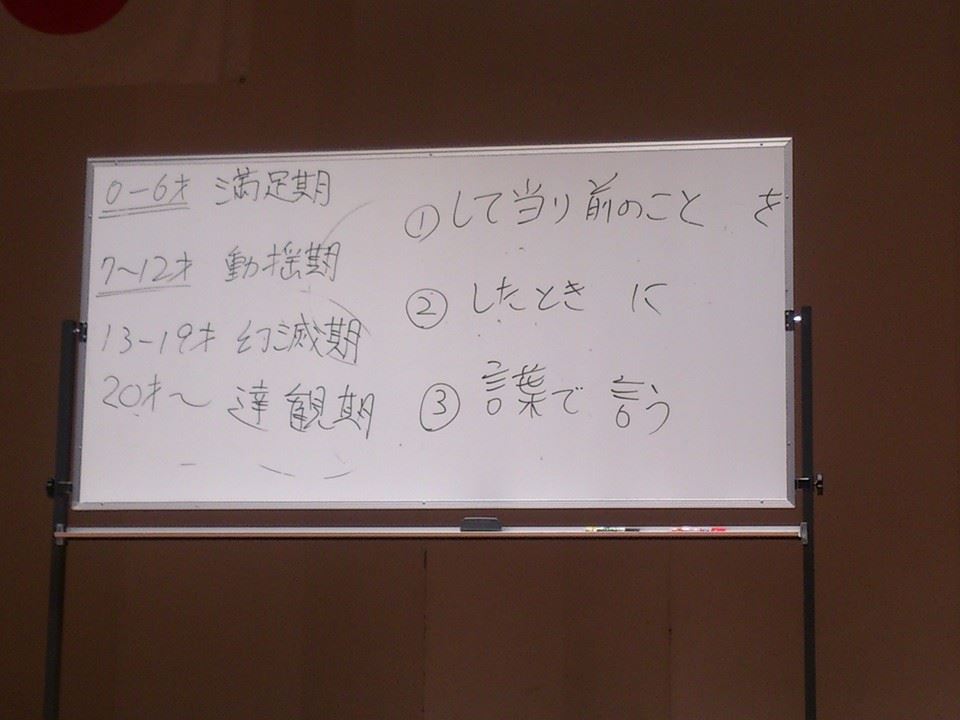 0-6才 満足期
7~12才 動揺期
13-19才 幻滅期
20才~ 達観期
①して当り前のこと を
②したとき に
③言葉で 言う